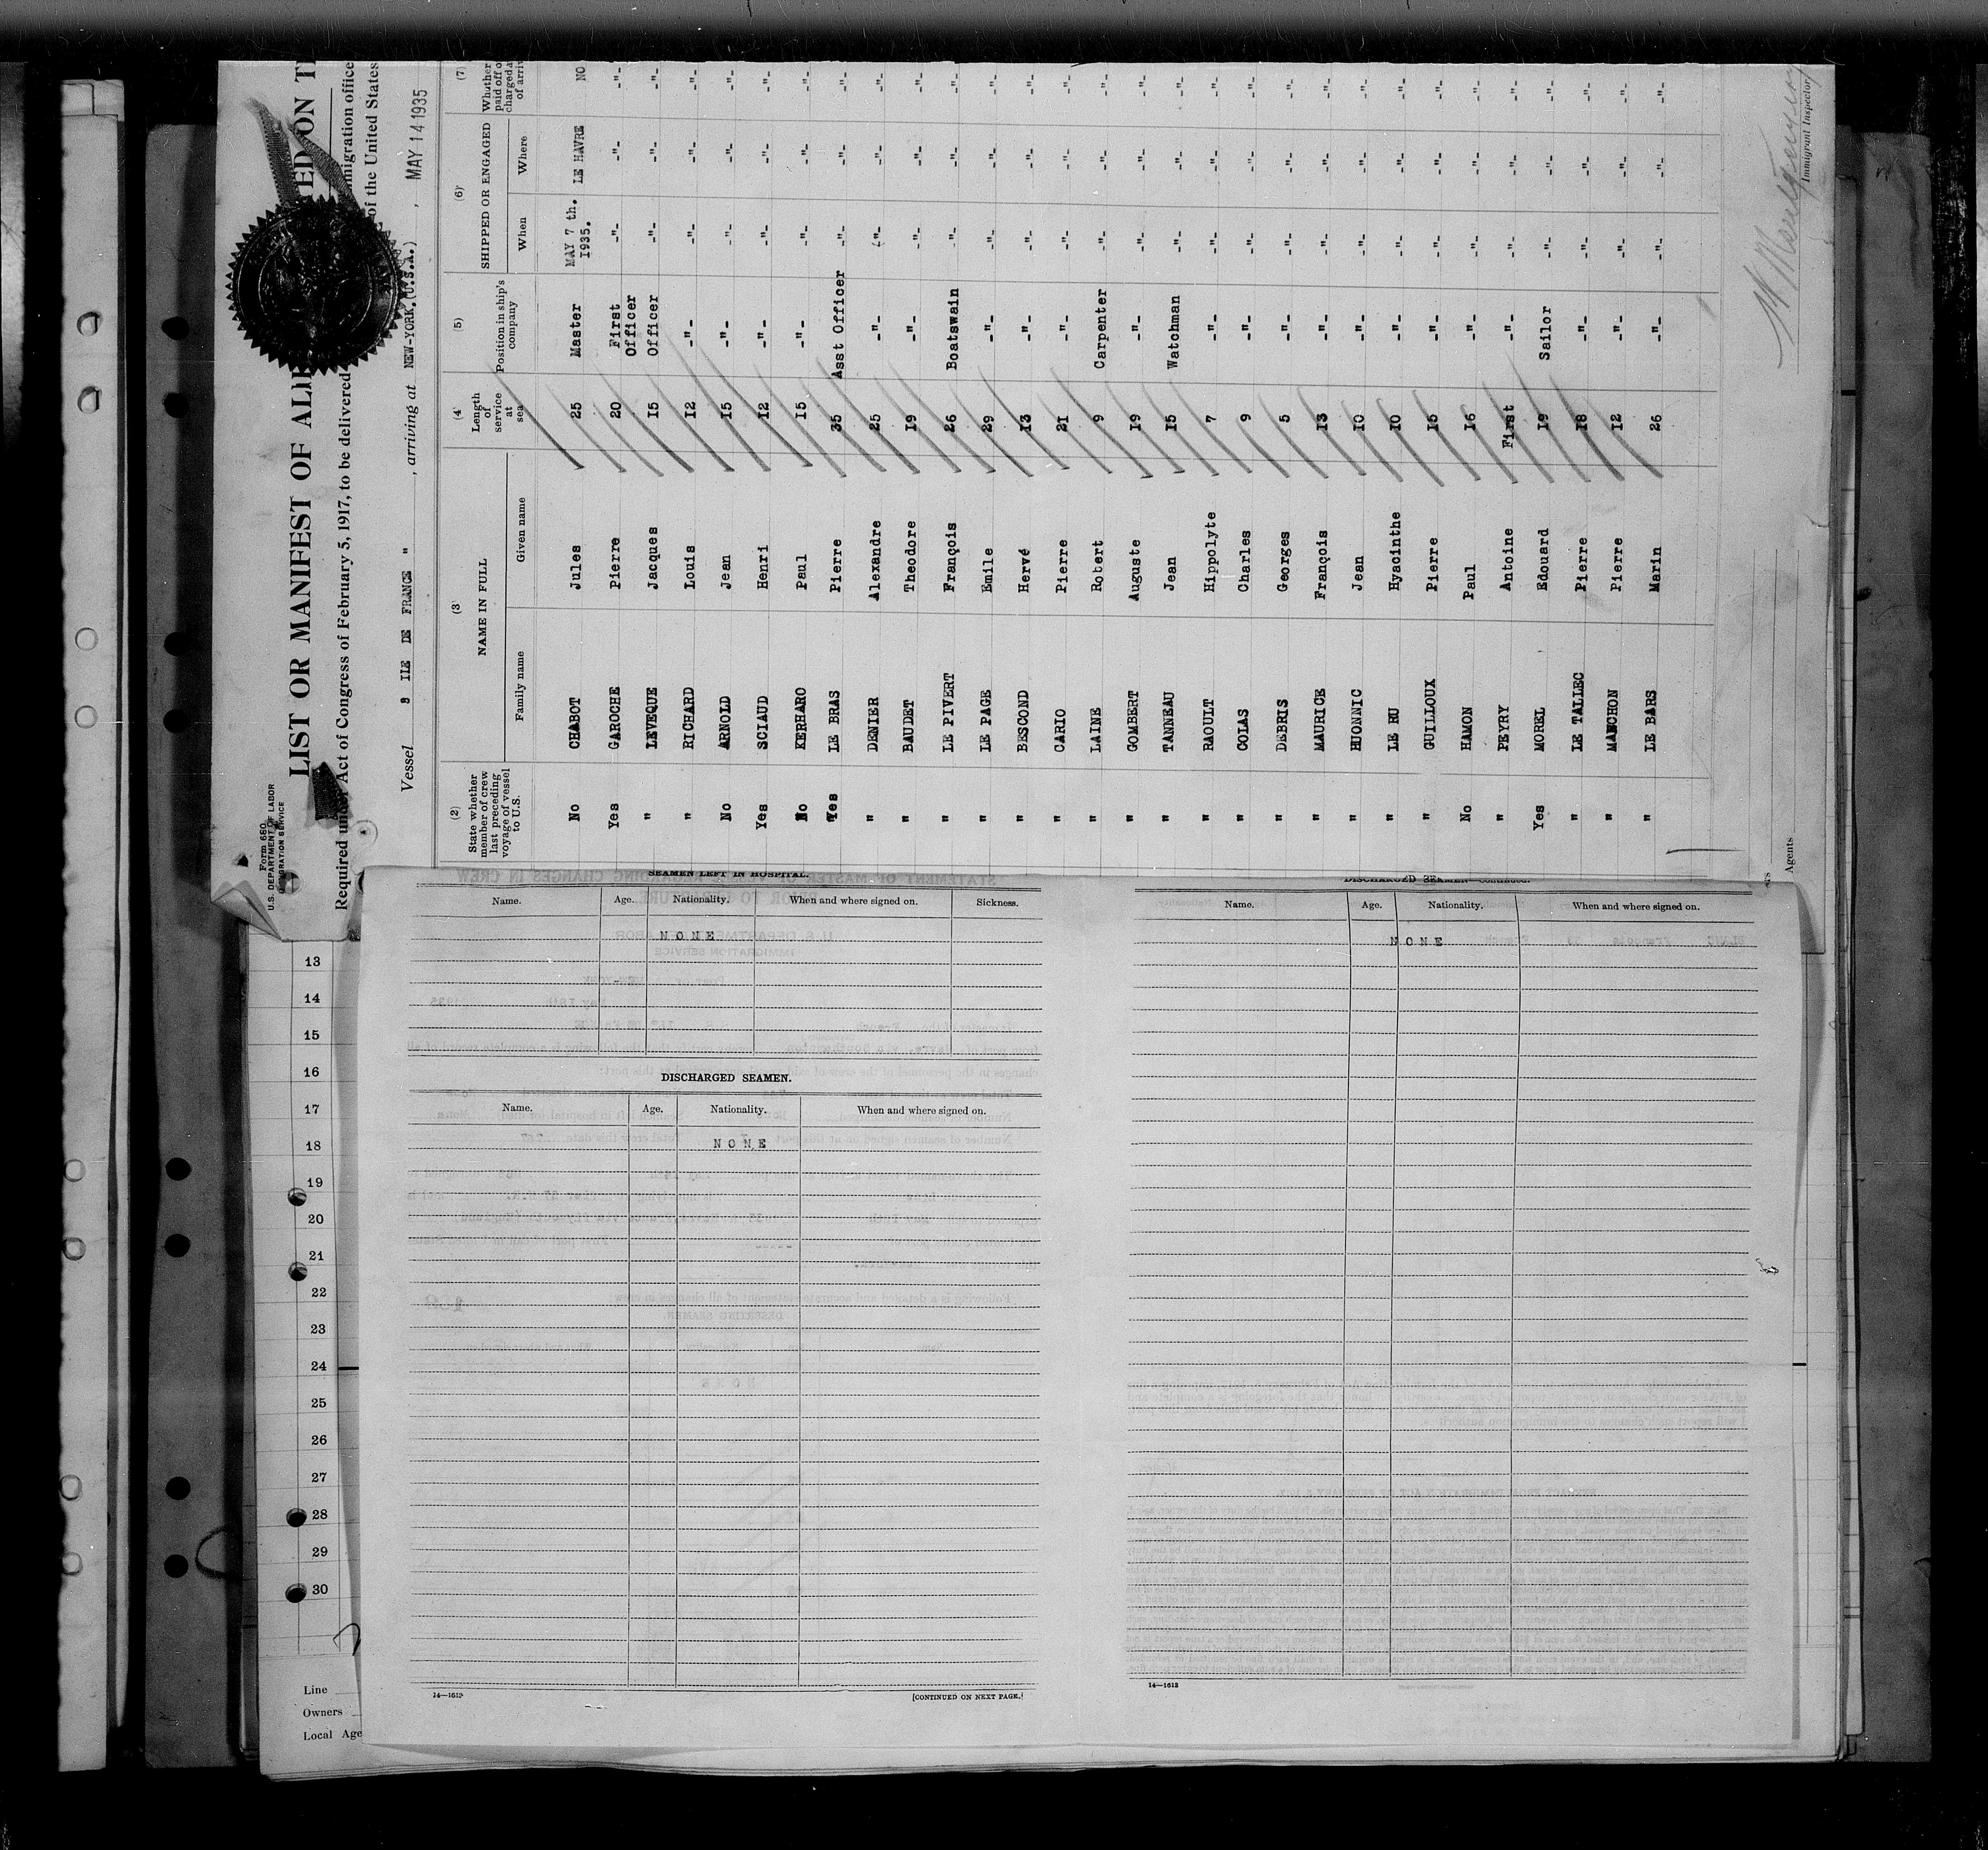 Form 680
U.S. DEPARTMENT OF LABOR
LIST OR MANIFEST OF
Required under Act of Congress of February 5, 1917, to be delivered
of the United States
Vessel S ILE DE FRANCE ", arriving at NEW-YORK.(U.S.A.), MAY 14 1935
(2) State whether member of crew last preceding voyage of vessel to U.S.
(3) NAME IN FULL
Family name Given name
(4 Length of service at sea
(5) Position in ship's company
(6) SHIPPED OR ENGAGED
When Where
(7) Whether
No CHABOT Jules 25 Master MAY 7 th. I935. LE HAVRE NO
Yes GAROCHE Pierre 20 First Officer -"- -"- -"-
" LEVEQUE Jacques I5 Officer -"- -"- -"-
" RICHARD Louis I2 -"- -"- -"- -"-
No ARNOLD Jean I5 -"- -"- -"- -"-
Yes SCIAUD Henri I2 -"- -"- -"- -"-
No KERHARO Paul I5 -"- -"- -"- -"-
Yes LE BRAS Pierre 35 Asst Officer -"- -"- -"-
" DENIER Alexandre 25 -"- -"- -"- -"-
" BAUDET Theodore I9 -"- -"- -"- -"-
" LE PIVERT François 26 Boatswain -"- -"- -"-
" LE PAGE Emile 29 -"- -"- -"- -"-
" BESCOND Hervé I3 -"- -"- -"- -"-
" CARIO Pierre 2I -"- -"- -"- -"-
" LAINE Robert 9 Carpenter -"- -"- -"-
" GOMBERT Auguste I9 -"- -"- -"- -"-
" TANNEAU Jean I5 Watchman -"- -"- -"-
" RAOULT Hippolyte 7 -"- -"- -"- -"-
" COLAS Charles 9 -"- -"- -"- -"-
" DEBRIS Georges 5 -"- -"- -"- -"-
" MAURICE François I3 -"- -"- -"- -"-
" HUONNIC Jean I0 -"- -"- -"- -"-
" LE HU Hyacinthe I0 -"- -"- -"- -"-
" GUILLOUX Pierre I5 -"- -"- -"- -"-
No HAMON Paul I6 -"- -"- -"- -"-
" PEYRY Antoine First -"- -"- -"- -"-
Yes MOREL Edouard I9 Sailor -"- -"- -"-
" LE TALLEC Pierre I8 -"- -"- -"- -"-
" MANCHON Pierre I2 -"- -"- -"- -"-
" LE BARS Marin 26 -"- -"- -"- -"-
Immigrant Inspector
Agents
SEAMEN LEFT IN HOSPITAL.
Name. Age. Nationality. When and where signed on. Sickness.
NONE
DISCHARGED SEAMEN.
Name. Age. Nationality. When and where signed on.
NONE
14—1612
[CONTINUED ON NEXT PAGE.]
DISCHARGED SEAMEN—Continued.
Name. Age. Nationality. When and where signed on.
NONE
14—1612
13
14
15
16
17
18
19
20
21
22
23
24
25
26
27
28
29
30
Line
Owners
Local